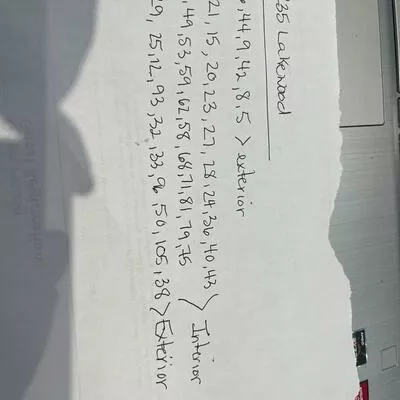 35 Lakewood
, 44, 9, 42, 8, 5 > exterior
21, 15, 20, 23, 27, 28, 24, 36, 40, 43
, 49, 53, 59, 62, 58, 68, 71, 81, 79, 75 > Interior
9, 25, 12, 93, 32, 33, 96, 50, 105, 38 > Exterior